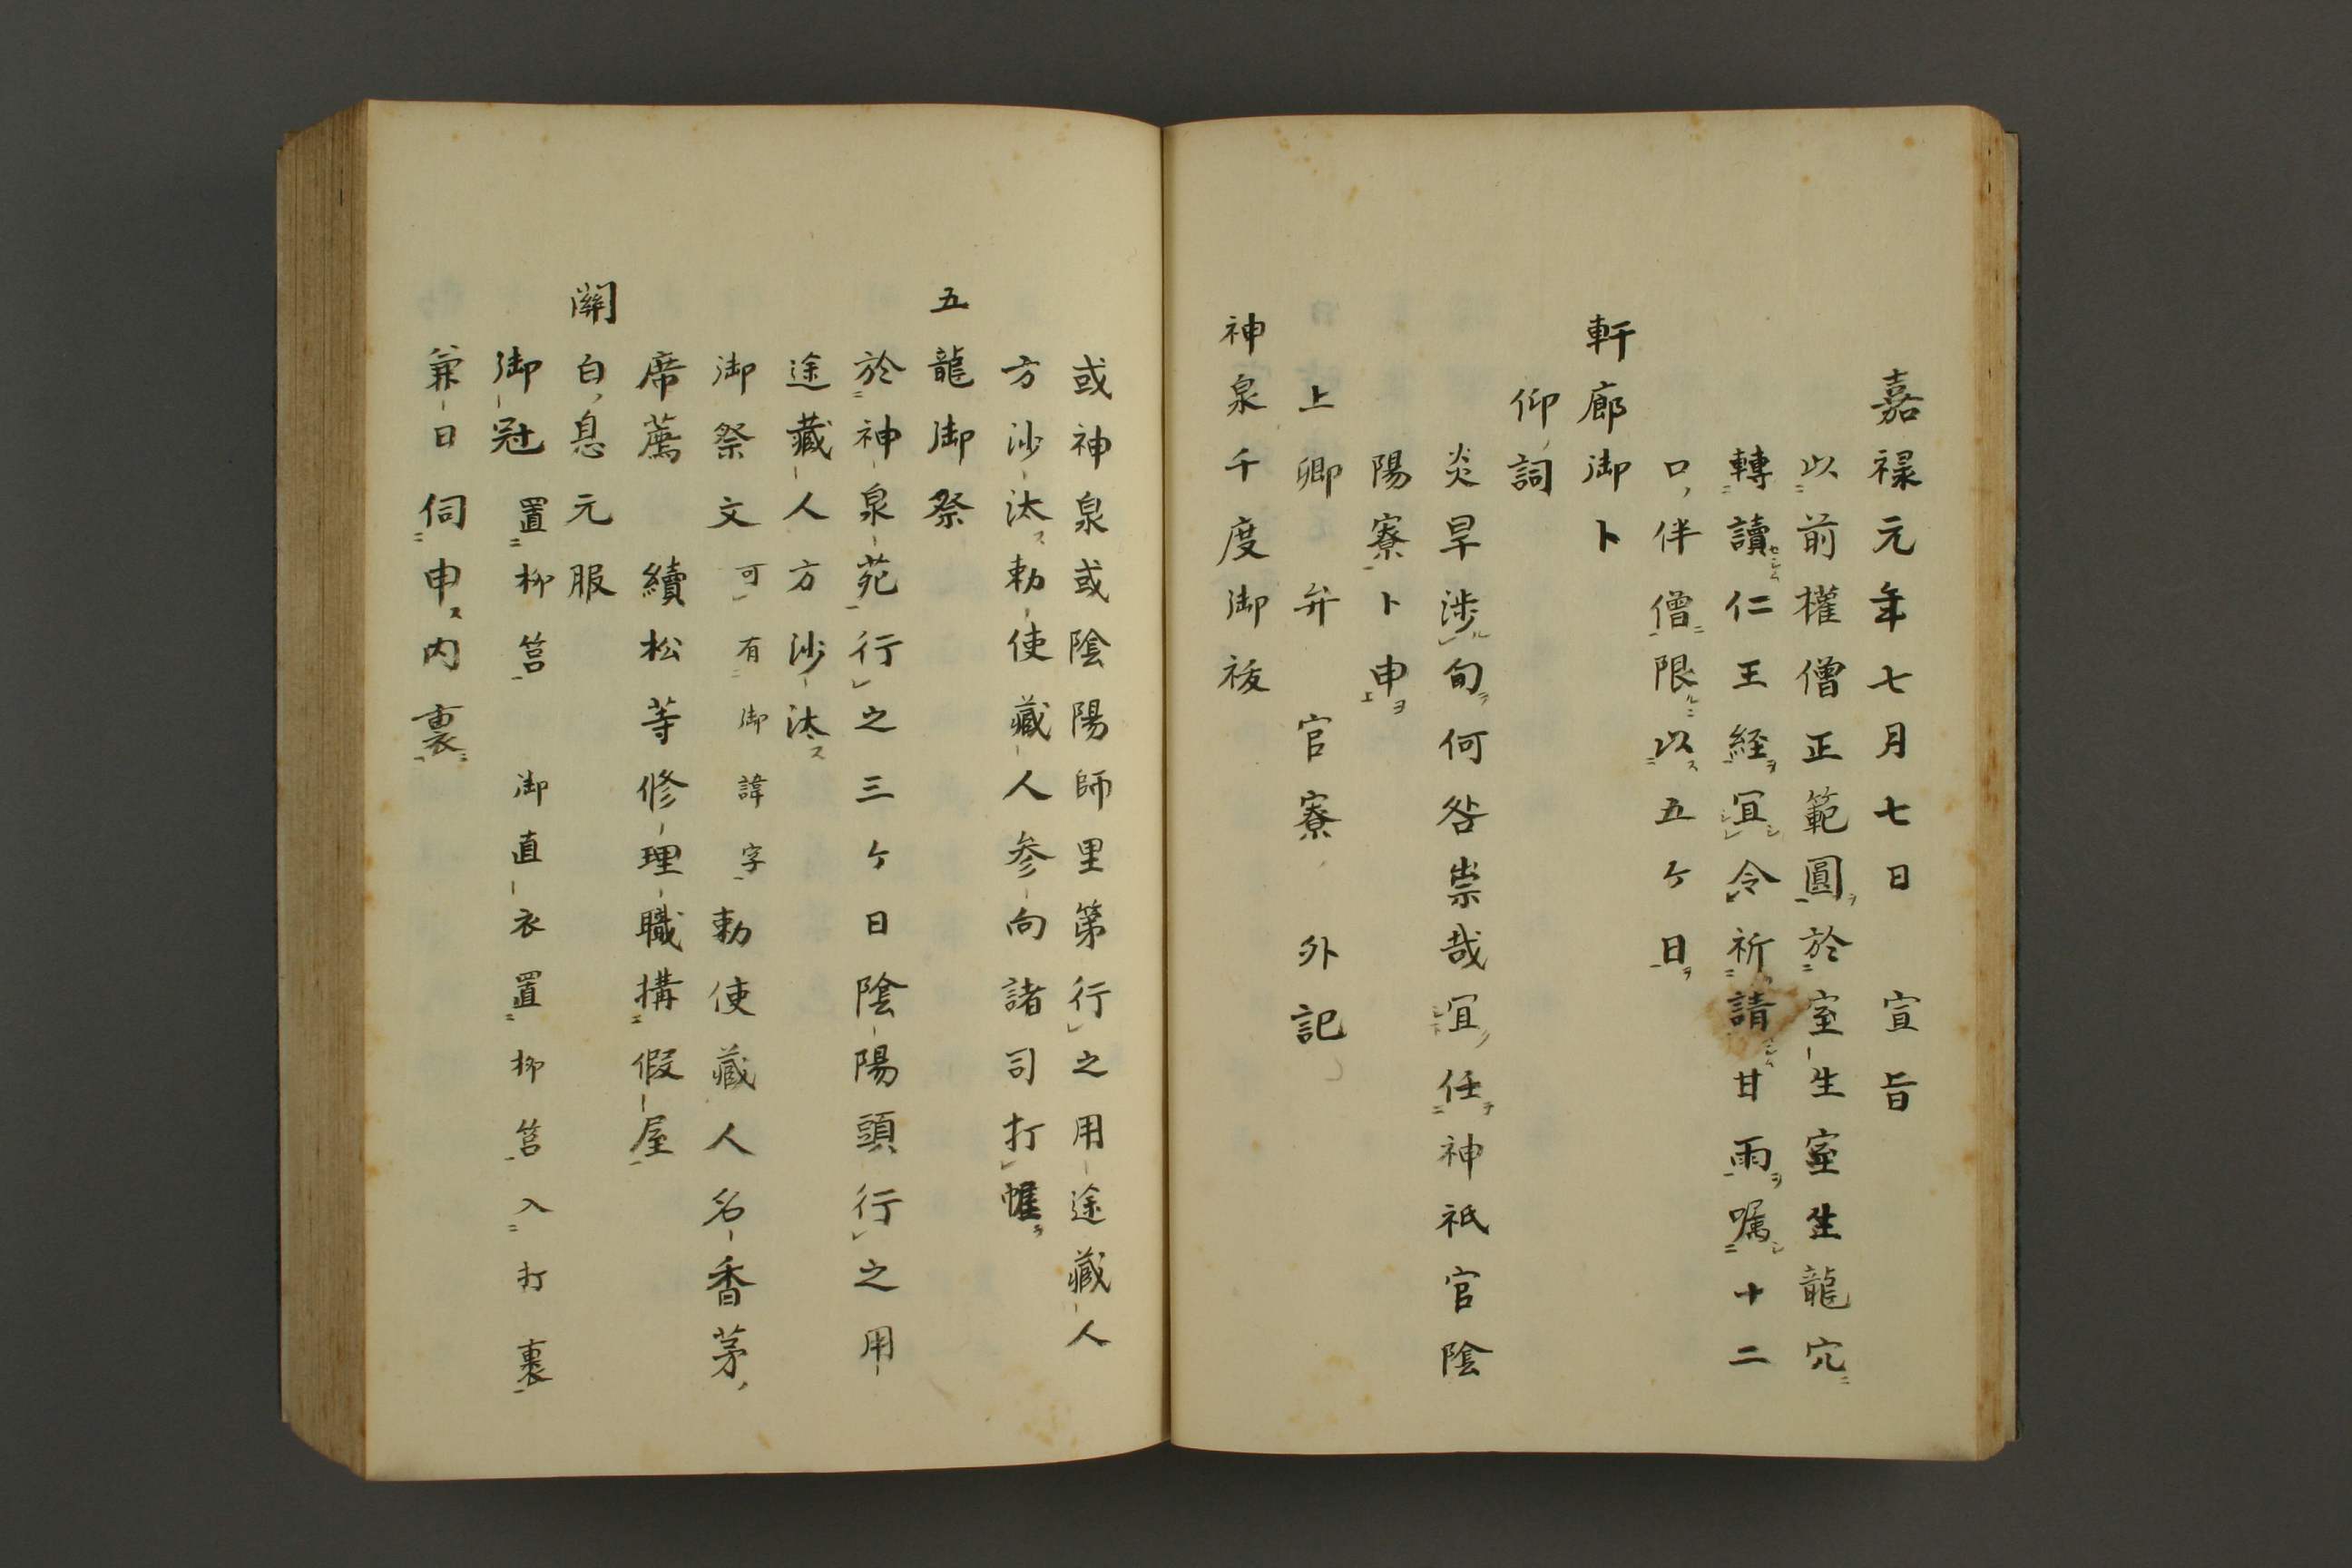 嘉禄元年七月七日　宣旨
以前權僧正範圓於室生室生龍穴
轉讀仁王経宜令祈請甘雨嘱十二
口伴僧限以五ケ日
軒廊御卜
仰詞
炎旱渉旬何咎祟哉宜任神祇官陰
陽寮卜申
上卿　弁　官寮　外記
神泉千度御祓
或神泉或陰陽師里第行之用途藏人
方沙汰勅使藏人参向諸司打幄
五龍御祭
於神泉苑行之三ケ日陰陽頭行之用
途藏人方沙汰
御祭文可有御諱字勅使藏人名香茅
席薦　續松等修理職構假屋
關白息元服
御冠　置柳筥　御直衣置柳筥入打裹
兼日伺申内裏